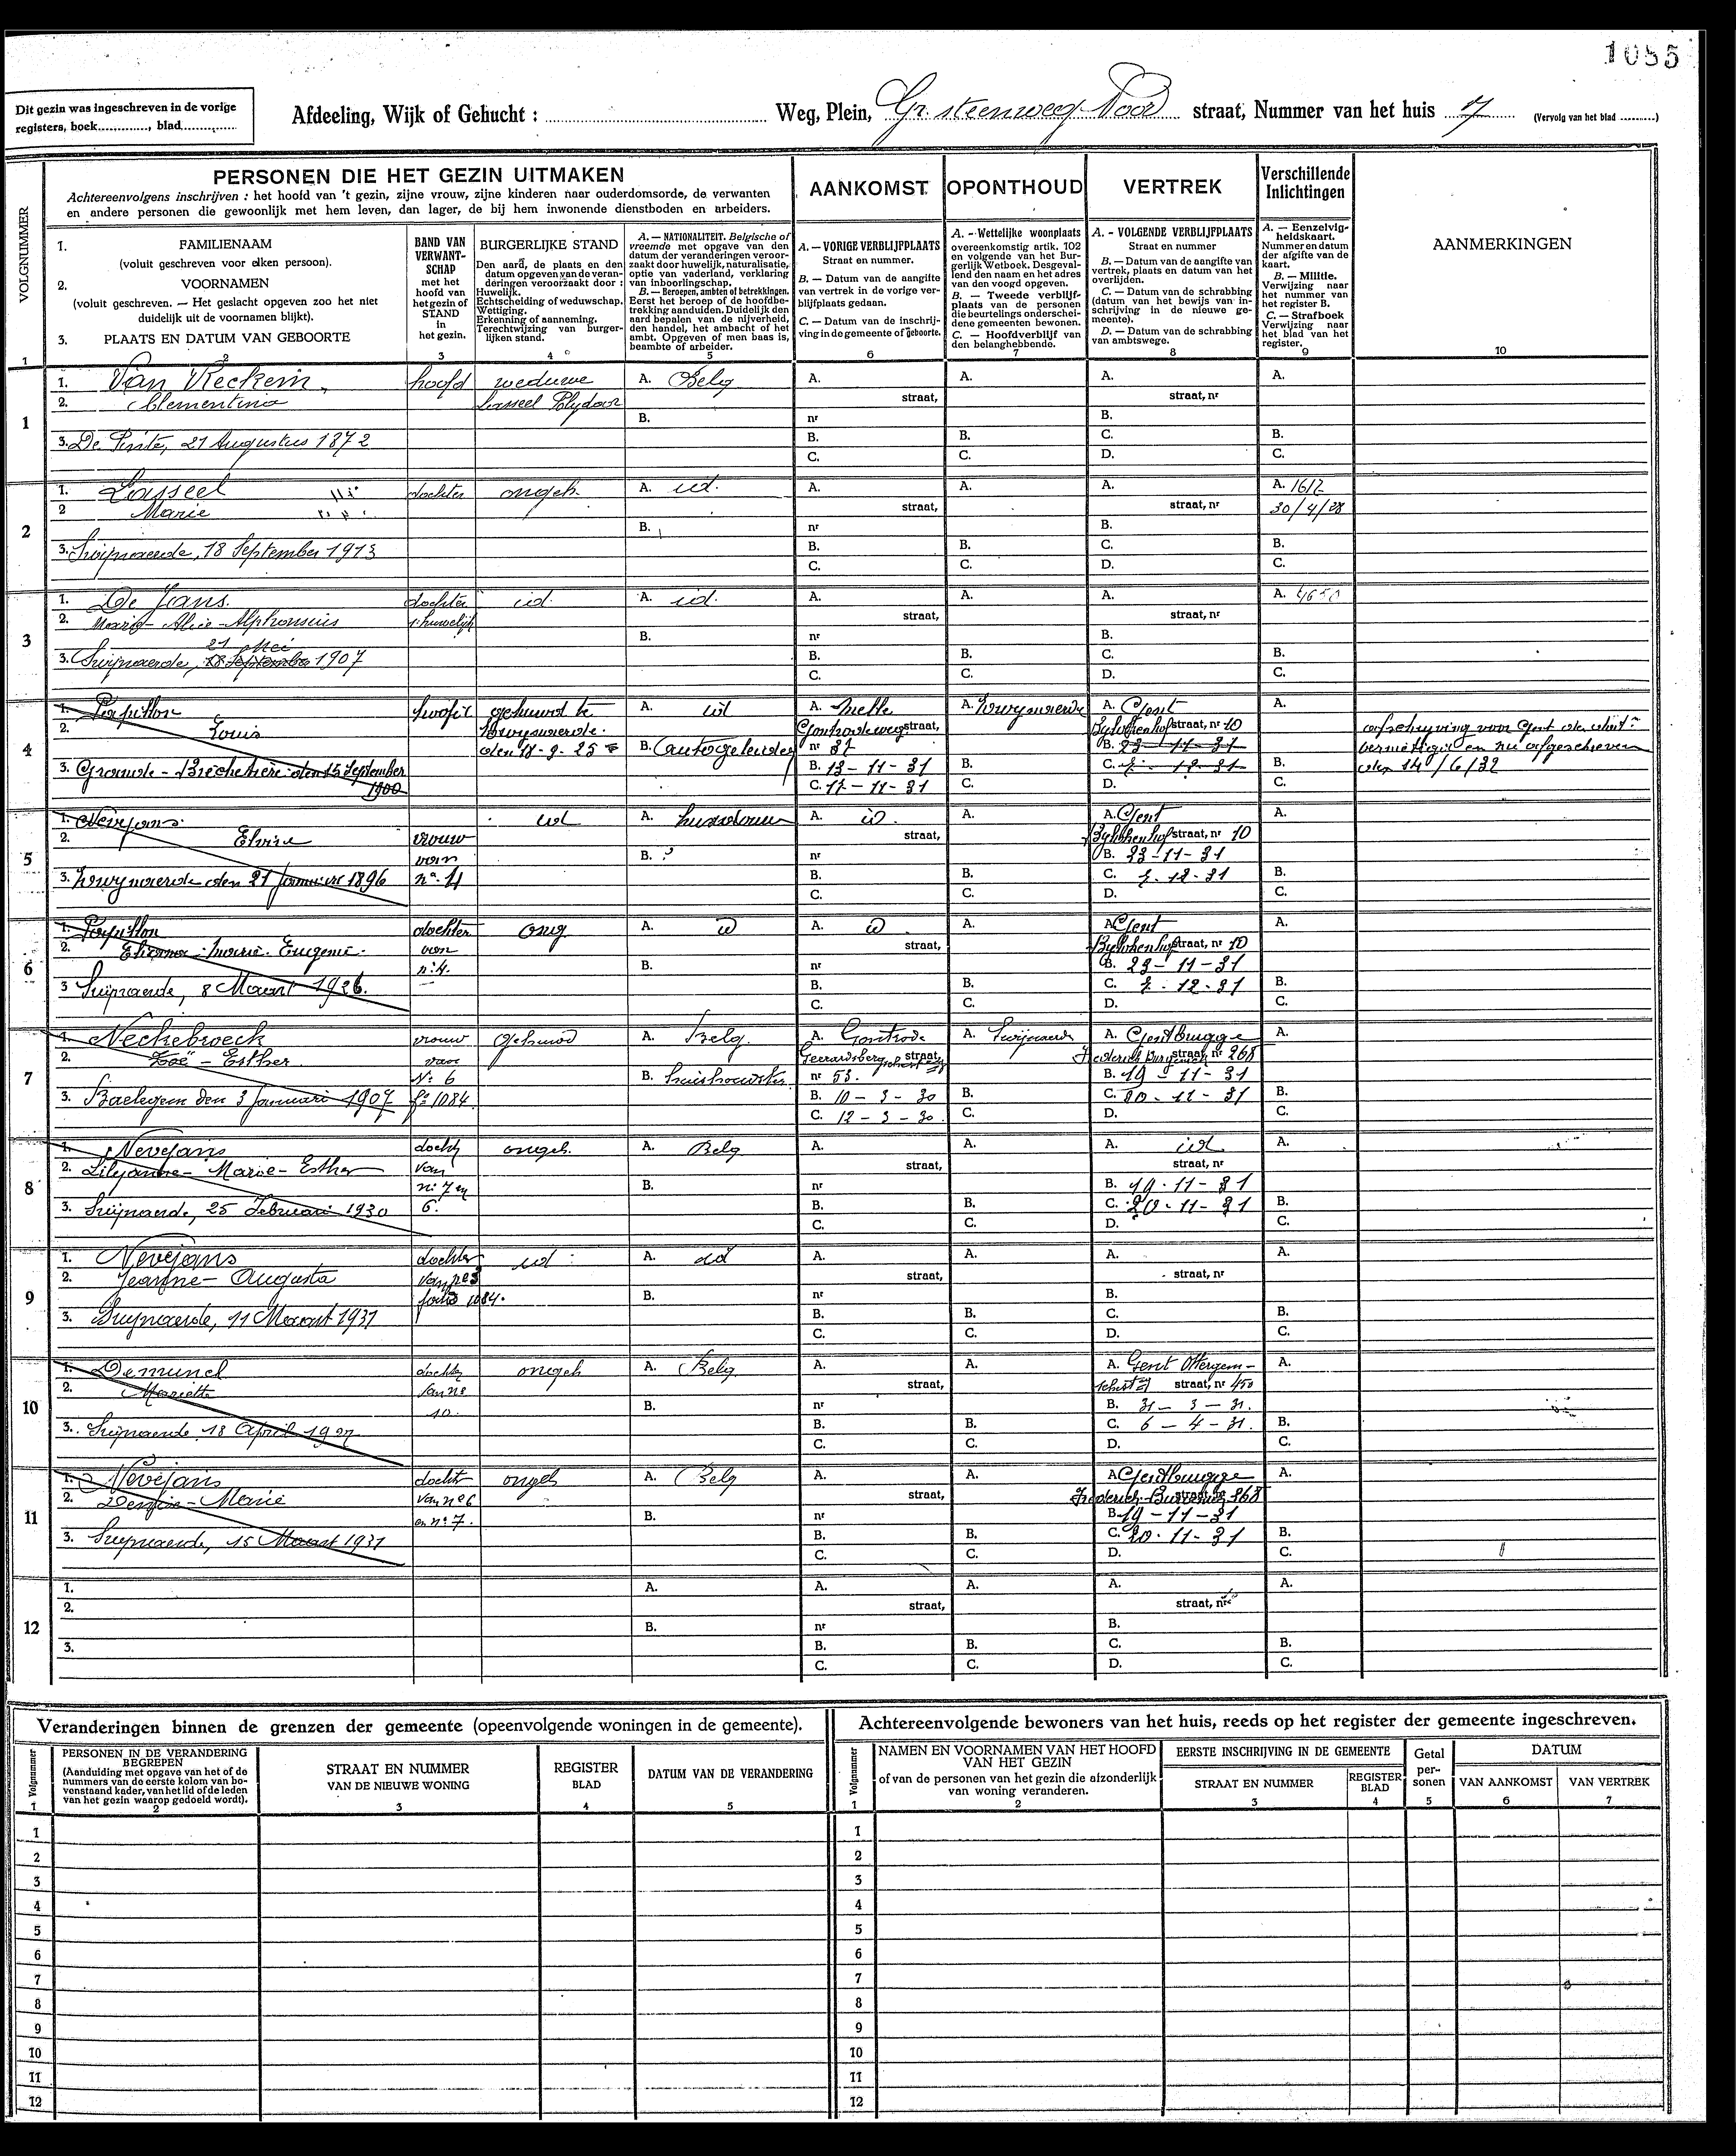 1085
Dit gezin was ingeschreven in de vorige
registers, boek............, blad...............
Afdeeling, Wijk of Gehucht : ........ Weg, Plein, Gr. steenweg Noord straat, Nummer van het huis 7 (Vervolg van het blad ..........)
PERSONEN DIE HET GEZIN UITMAKEN
Achtereenvolgens inschrijven : het hoofd van 't gezin, zijne vrouw, zijne kinderen naar ouderdomsorde, de verwanten
en andere personen die gewoonlijk met hem leven, dan lager, de bij hem inwonende dienstboden en arbeiders.
AANKOMST
OPONTHOUD
VERTREK
Verschillende
Inlichtingen
VOLGNUMMER
1. FAMILIENAAM
(voluit geschreven voor elken persoon).
2. VOORNAMEN
(voluit geschreven. — Het geslacht opgeven zoo het niet
duidelijk uit de voornamen blijkt).
3. PLAATS EN DATUM VAN GEBOORTE
BAND VAN
VERWANT-
SCHAP
met het
hoofd van
het gezin of
STAND
in
het gezin.
BURGERLIJKE STAND
Den aard, de plaats en den
datum opgeven van de veran-
deringen veroorzaakt door :
Huwelijk.
Echtscheiding of weduwschap.
Wettiging.
Erkenning of aanneming.
Terechtwijzing van burger-
lijken stand.
A. — NATIONALITEIT. Belgische of
vreemde met opgave van den
datum der veranderingen veroor-
zaakt door huwelijk, naturalisatie,
optie van vaderland, verklaring
van inboorlingschap.
B. — Beroepen, ambten of betrekkingen.
Eerst het beroep of de hoofdbe-
trekking aanduiden. Duidelijk den
aard bepalen van de nijverheid,
den handel, het ambacht of het
ambt. Opgeven of men baas is,
beambte of arbeider.
A. — VORIGE VERBLIJFPLAATS
Straat en nummer.
B. — Datum van de aangifte
van vertrek in de vorige ver-
blijfplaats gedaan.
C. — Datum van de inschrij-
ving in de gemeente of geboorte.
A. - Wettelijke woonplaats
overeenkomstig artik. 102
en volgende van het Bur-
gerlijk Wetboek. Desgeval-
lend den naam en het adres
van den voogd opgeven.
B. — Tweede verblijf-
plaats van de personen
die beurtelings onderschei-
dene gemeenten bewonen.
C. — Hoofdverblijf van
den belanghebbende.
A. - VOLGENDE VERBLIJFPLAATS
Straat en nummer
B. — Datum van de aangifte van
vertrek, plaats en datum van het
overlijden.
C. — Datum van de schrabbing
(datum van het bewijs van in-
schrijving in de nieuwe ge-
meente).
D. — Datum van de schrabbing
van ambtswege.
A. — Eenzelvig-
heidskaart.
Nummer en datum
der afgifte van de
kaart.
B. — Militie.
Verwijzing naar
het nummer van
het register B.
C. — Strafboek
Verwijzing naar
het blad van het
register.
AANMERKINGEN
1 2 3 4 5 6 7 8 9 10
1
1. Van Vleckem, hoofd weduwe A. Belg A. A. A. A.
2. Clementina Lasseel straat, straat, nr
B. nr B.
3. De Pinte, 21 Augustus 1872 B. B. C. B.
C. C. D. C.
2
1. Lasseel dochter ongeh. A. id. A. A. A. A. 1612
2 Marie straat, straat, nr 30/4/28
B. nr B.
3. Swijnaerde, 18 September 1913 B. B. C. B.
C. C. D. C.
3
1. De Jans. dochter id. A. id. A. A. A. A. 4650
2. Maria - Alice - Alphonsuis 1e huwelijk straat, straat, nr
21 Mei B. nr B.
3. Swijnaerde, 18 September 1907 B. B. C. B.
C. C. D. C.
4
1. Papillon hoofd gehuwd te A. id A. Melle A. Zwynaerde A. Gent A.
2. Louis Zwynaerde. Gontrodeweg straat, straat, nr 10 afschryving voor Gent
den 18-9-25 B. autogeleider nr 37 B. 23-11-31 vernietigd en nu afgeschreven
3. Grande - Brechetière den 15 September 1900 B. 13-11-31 B. C. 7-12-31 B. den 14/6/32
C. 17-11-31 C. D. C.
5
1. Nevejans. id A. huisvrouw A. id A. Gent A.
2. Elvire vrouw straat, straat, nr 10
van B. nr B. 23-11-31
3. Zwynaerde den 21 Januari 1896 n° 4 B. B. C. 7-12-31 B.
C. C. D. C.
6
1. Papillon dochter ong A. id A. id A. A. Gent A.
2. Marie - Eugenie van straat, straat, nr 10
n° 4. B. nr B. 23-11-31
3 Swijnaerde, 8 Maart 1926. B. B. C. 7-12-31 B.
C. C. D. C.
7
1. Neckebroeck vrouw gehuwd A. Belg. A. Gontrode A. Swijnaerde A. Gentbrugge A.
2. Zoë - Esther van Geerardsberg straat, straat nr 268
N° 6 B. huishoudster nr 53. B. 19-11-31
3. Baelegem den 3 Januari 1907 f° 1084 B. 10-3-30 B. C. 20-11-31 B.
C. 12-3-30. C. D. C.
8
1. Nevejans docht ongeh. A. Belg A. A. A. id A.
2. Lilyanne - Marie - Esther van straat, straat, nr
n° 7 en B. nr B. 19-11-31
3. Swijnaerde, 25 Februari 1930 6. B. B. C. 20-11-31 B.
C. C. D. C.
9
1. Nevejans dochter id A. id A. A. A. A.
2. Jeanne - Augusta van n° 3 straat, straat, nr
folio 1084. B. nr B.
3. Swijnaerde, 11 Maart 1931 B. B. C. B.
C. C. D. C.
10
1. Demunck dochter ongeh A. Belg A. A. A. Gent Ottergem- A.
2. Mariette van n° straat, schestw straat, nr 450
10. B. nr B. 31-3-31.
3. Swijnaerde 18 April 1927 B. B. C. 6-4-31. B.
C. C. D. C.
11
1. Nevejans docht ongeh A. Belg A. A. A. Gentbrugge A.
2. Denise - Marie van n° 6 straat, straat, nr 268
en n° 7. B. nr B. 19-11-31
3. Swijnaerde, 15 Maart 1931 B. B. C. 20-11-31 B.
C. C. D. C.
12
1. A. A. A. A. A.
2. straat, straat, nr
B. nr B.
3. B. B. C. B.
C. C. D. C.
Veranderingen binnen de grenzen der gemeente (opeenvolgende woningen in de gemeente).
Volgnummer
PERSONEN IN DE VERANDERING
BEGREPEN
(Aanduiding met opgave van het of de
nummers van de eerste kolom van bo-
venstaand kader, van het lid of de leden
van het gezin waarop gedoeld wordt).
STRAAT EN NUMMER
VAN DE NIEUWE WONING
REGISTER
BLAD
DATUM VAN DE VERANDERING
1 2 3 4 5
1
2
3
4
5
6
7
8
9
10
11
12
Achtereenvolgende bewoners van het huis, reeds op het register der gemeente ingeschreven.
Volgnummer
NAMEN EN VOORNAMEN VAN HET HOOFD
VAN HET GEZIN
of van de personen van het gezin die afzonderlijk
van woning veranderen.
EERSTE INSCHRIJVING IN DE GEMEENTE
STRAAT EN NUMMER
REGISTER
BLAD
Getal
per-
sonen
DATUM
VAN AANKOMST
VAN VERTREK
1 2 3 4 5 6 7
1
2
3
4
5
6
7
8
9
10
11
12